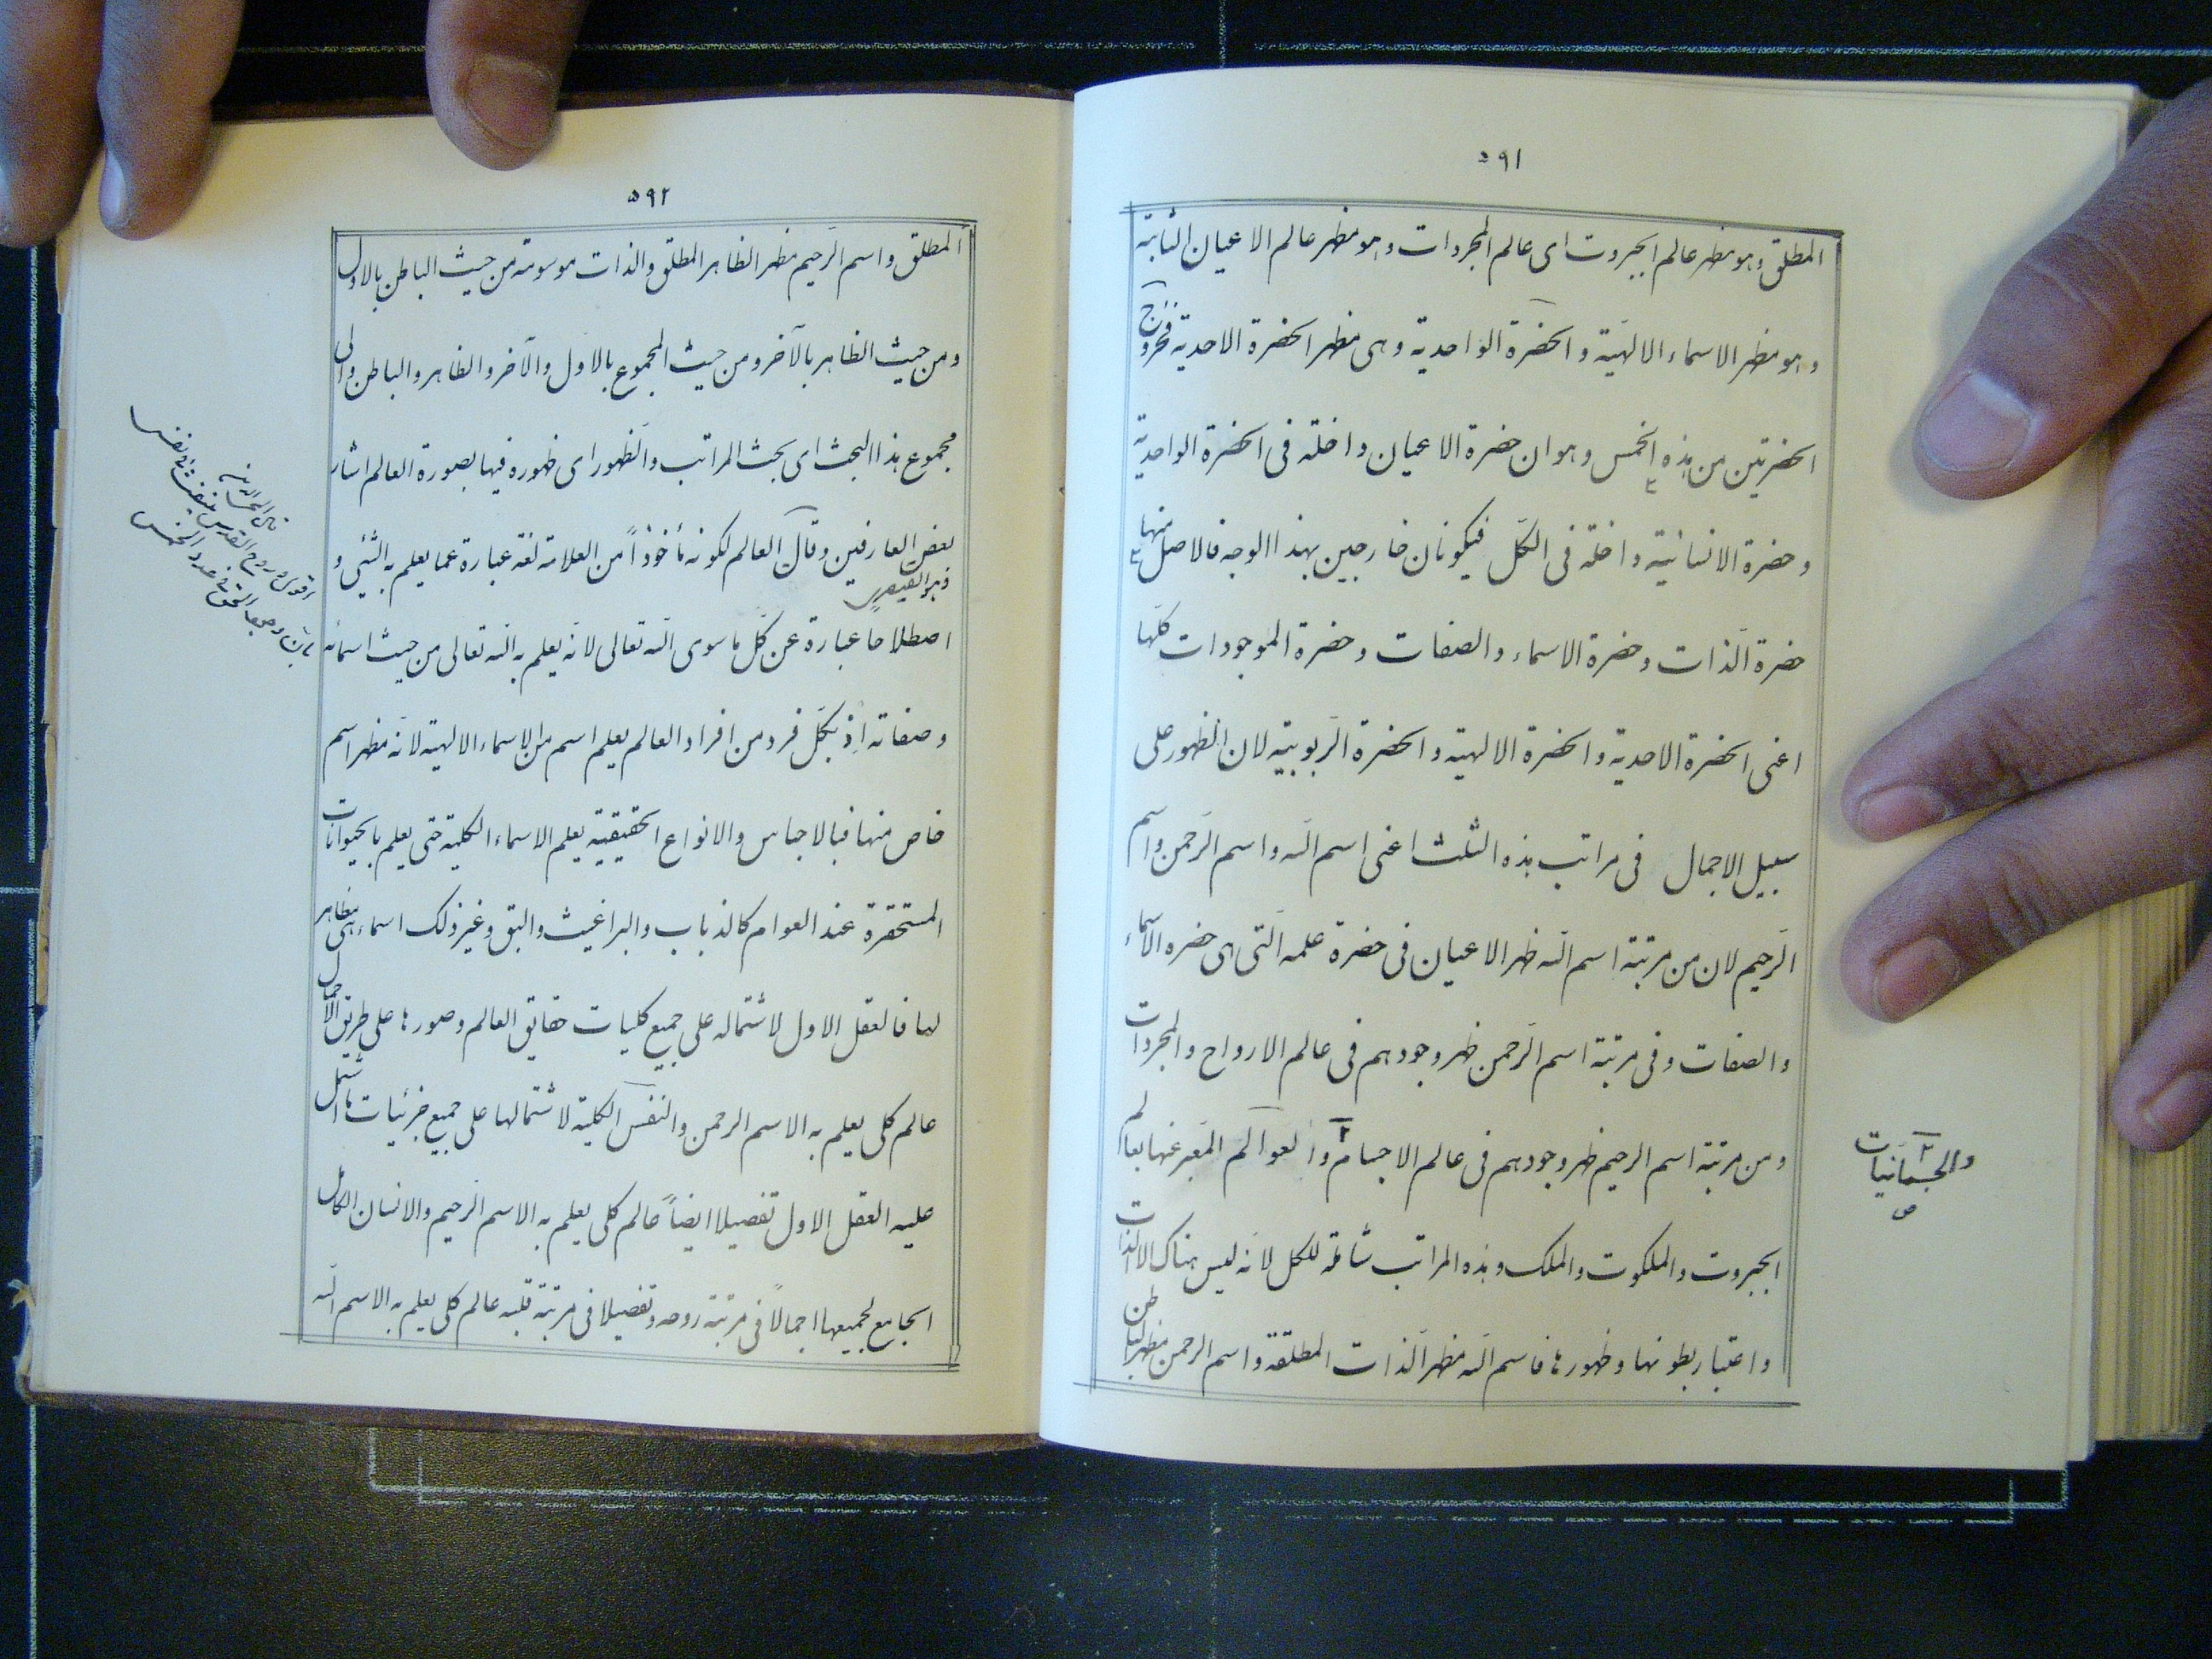 ٥٩١
المطلق وهو مظهر عالم الجبروت اى عالم المجردات وهو مظهر عالم الاعيان الثابتة
وهو مظهر الاسماء الالهّية والحضرة الواحدية وهى مظهر الحضرة الاحدية فخروج
الحضرتين من هذه الخمس وهو ان حضرة الاعيان داخلة فى الحضرة الواحدية
وحضرة الانسانية داخلة فى الكّل فيكونان خارجين بهذا الوجه فالاصل منها
حضرة الّذات وحضرة الاسماء والصفات وحضرة الموجودات كلّها
اعنى الحضرة الاحدية والحضرة الالهية والحضرة الرّبوبيّه لان الظهور على
سبيل الاجمال فى مراتب هذه الثلث اعنى اسم الّله واسم الرّحمن واسم
الرّحيم لان من مرتبة اسم الّله ظهر الاعيان فى حضرة علمه الّتى هى حضره الاسماء
والصفات وفى مرتبة اسم الرّحمن ظهر وجودهم فى عالم الارواح والمجردات
ومن مرتبة اسم الرحيم ظهر وجودهم فى عالم الاجسام ٢ والعوالم المعبر عنها بعالم
٢
والجسمانيات
ص
الجبروت والملكوت والملك وهذه المراتب شاملة للكل لانّه ليس هناك الا الذات
واعتبار بطونها وظهورها فاسم الّله مظهر الّذات المطلقة واسم الرحمن مظهر الباطن
٥٩٢
المطلق واسم الرّحيم مظهر الظاهر المطلق والذات موسومة من حيث الباطن بالاول
ومن حيث الظاهر بالآخر ومن حيث المجموع بالاول والآخر والظاهر والباطن والى
مجموع هذا البحث اى بحث المراتب والظهور اى ظهوره فيها بصورة العالم اشار
بعض العارفين وقال العالم لكونه مأخوذاً من العلامة لغة عبارة عما يعلم به الشّئى و
اصطلاحا عبارة عن كّل ما سوى الّله تعالى لانّه يعلم به الّله تعالى من حيث اسمائه
وصفاته اذ بكّل فرد من افراد العالم يعلم اسم من الاسماء الالهية لانّه مظهر اسم
خاص منها فبالاجناس والانواع الحقيقية يعلم الاسماء الكلية حتى يعلم بالحيوانات
المستحقرة عند العوام كالذباب والبراغيث والبق وغير ذلك اسماء هى مظاهر
لها فالعقل الاول لاشتماله على جميع كليات حقايق العالم وصورها على طريق الاجمال
عالم كلى يعلم به الاسم الرحمن والنفس الكلية لاشتمالها على جميع جزئيات ما اشتمل
عليه العقل الاول تفصيلا ايضاً عالم كلى يعلم به الاسم الرّحيم والانسان الكامل
الجامع لجميعها اجمالاً فى مرتبة روحه وتفصيلا فى مرتبة قلبه عالم كلى يعلم به الاسم الّله